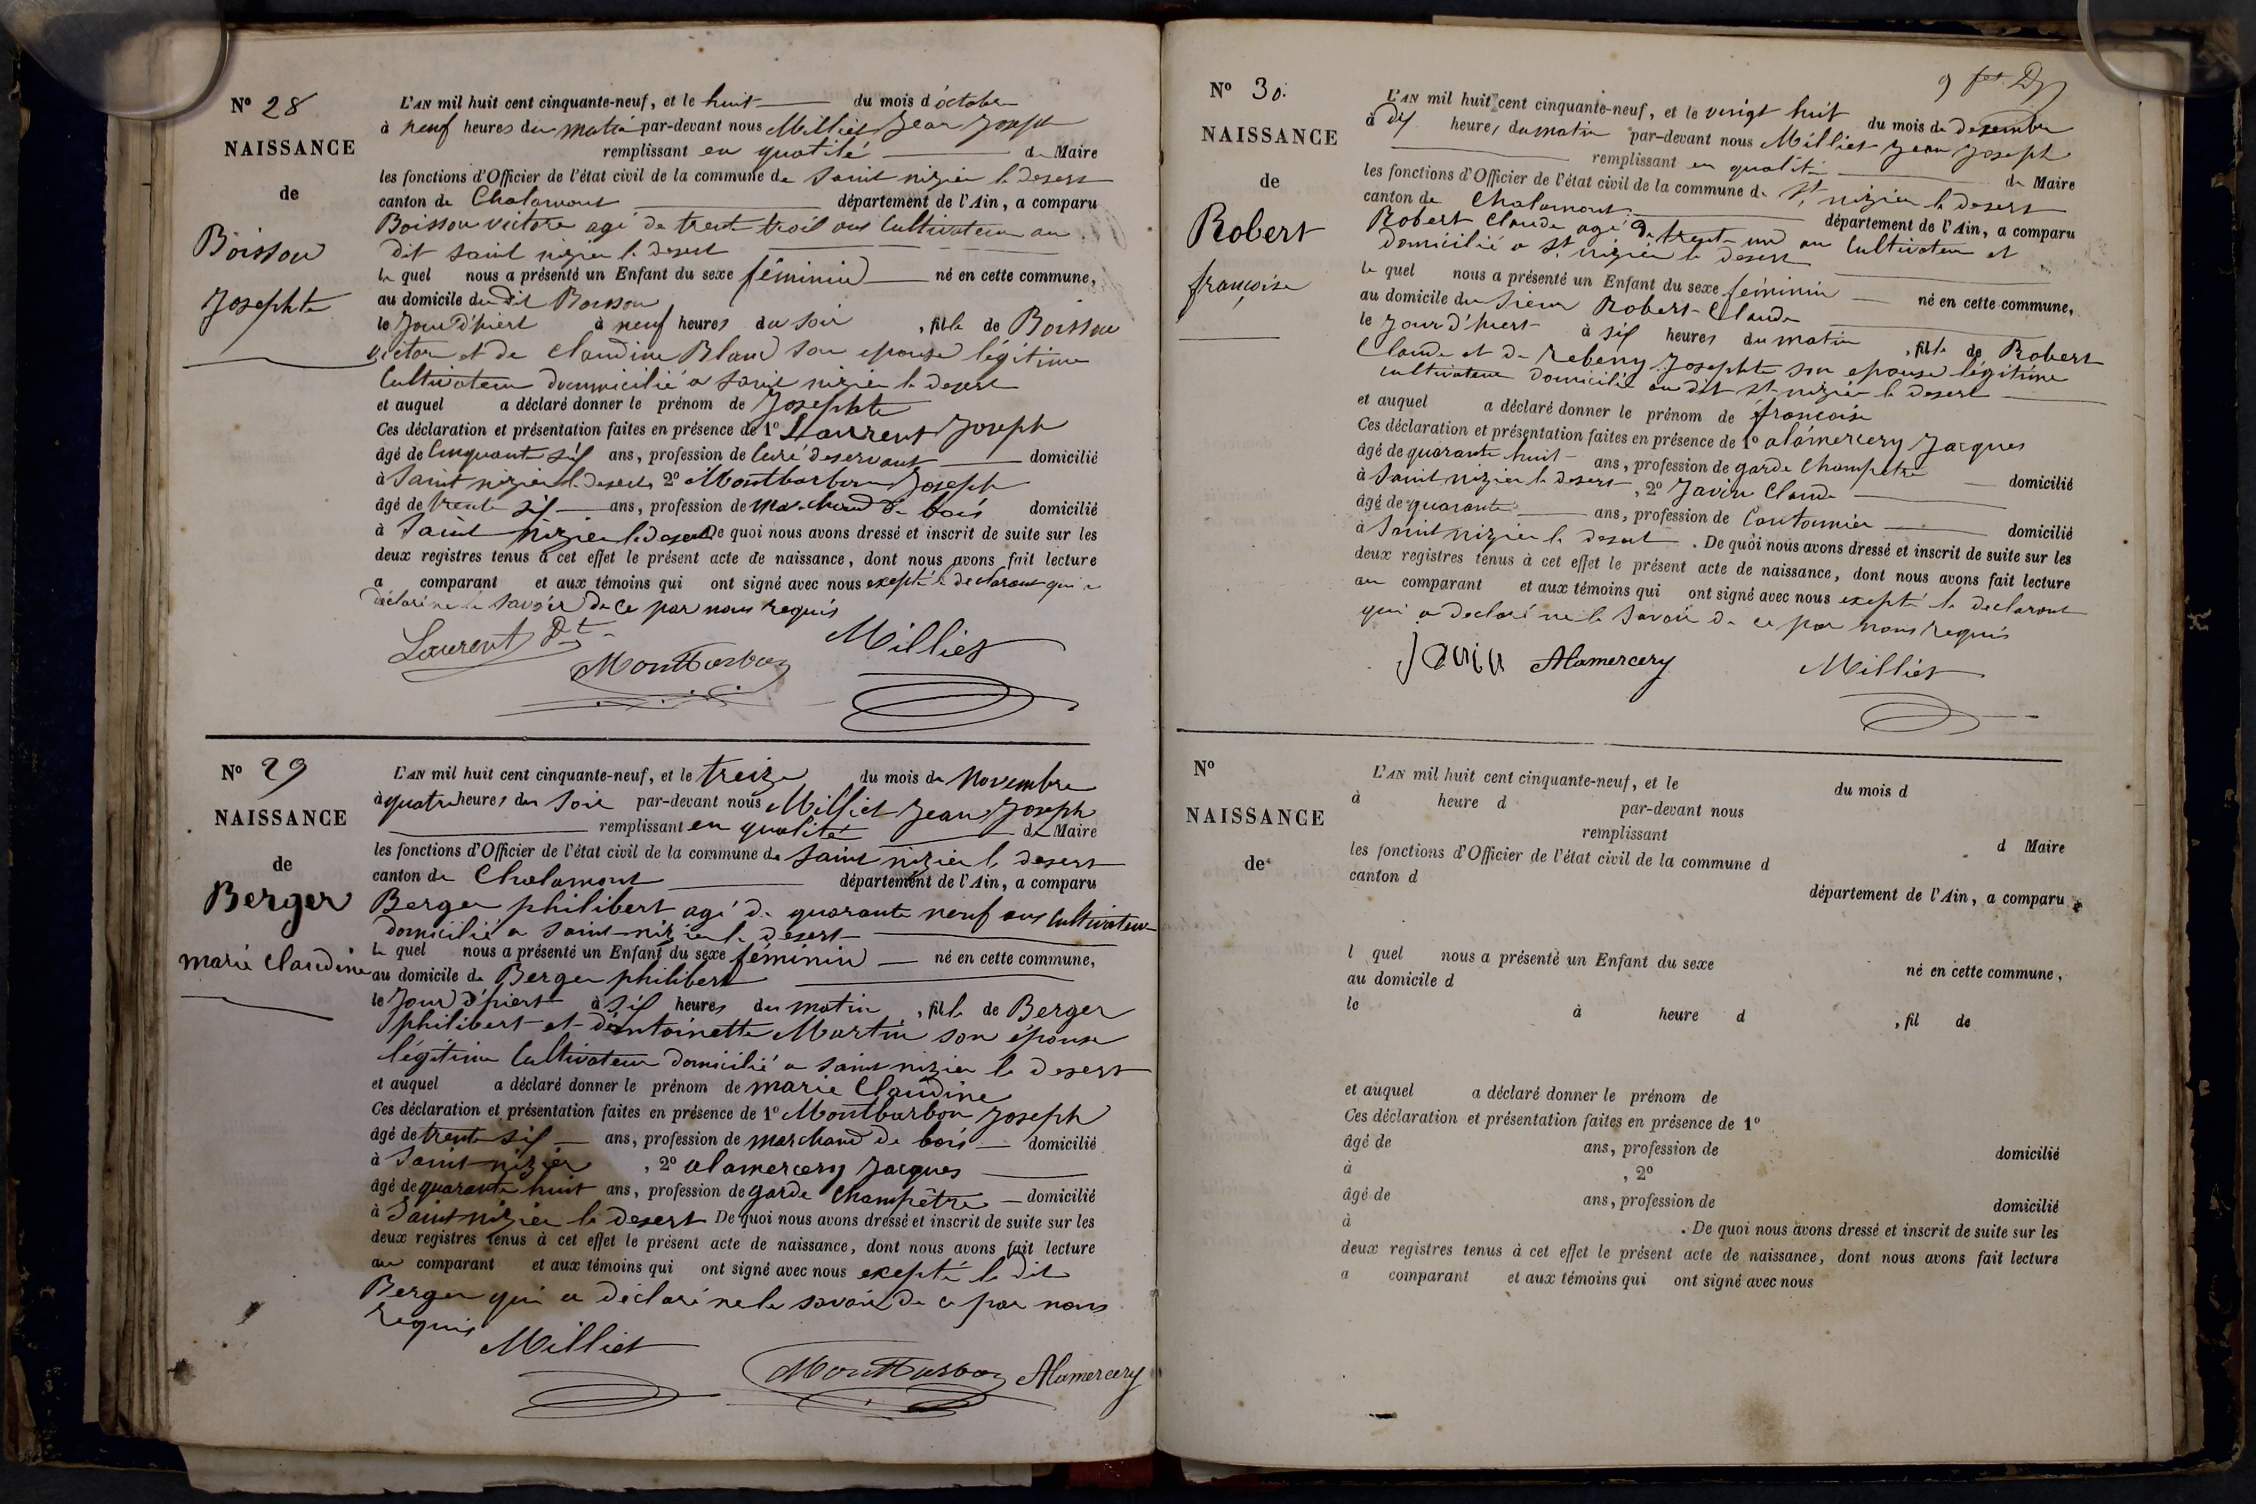 N° 28
NAISSANCE
de
Boisson
Josephte
L'AN mil huit cent cinquante-neuf, et le huit du mois d'octobre
à neuf heures du matin par-devant nous Milliet Jean Joseph
remplissant en qualité de Maire
les fonctions d'Officier de l'état civil de la commune de Saint nizier le desert
canton de Chalamont département de l'Ain, a comparu
Boisson victor agé de trent trois ans Cultivateur au
dit saint nizier le desert
le quel nous a présenté un Enfant du sexe féminin né en cette commune,
au domicile du dit Boisson
le Jour d'hiert à neuf heures du soir, fille de Boisson
victor et de Claudine Bland son epouse légitime
Cultivateur dommicilié a saint nizier le desert
et auquel a déclaré donner le prénom de Josephte
Ces déclaration et présentation faites en présence de 1° Laurent Joseph
âgé de Cinquante six ans, profession de Curé deservant domicilié
à Saint nizier le desert, 2° Montbarbon Joseph
âgé de trente six ans, profession de marchand de bois domicilié
à Saint nizier le desert De quoi nous avons dressé et inscrit de suite sur les
deux registres tenus à cet effet le présent acte de naissance, dont nous avons fait lecture
a comparant et aux témoins qui ont signé avec nous exepté le declarant qui a
déclaré ne le savoir de ce par nous requis
Laurent
Montbarbon
Milliet
N° 29
NAISSANCE
de
Berger
marie claudine
L'AN mil huit cent cinquante-neuf, et le treize du mois de Novembre
à quatre heures du soir par-devant nous Milliet Jean Joseph
remplissant en qualité de Maire
les fonctions d'Officier de l'état civil de la commune de saint nizier le desert
canton de Chalamont département de l'Ain, a comparu
Berger philibert agé de quarante neuf ans Cultivateur
domicilié a saint nizier le desert
le quel nous a présenté un Enfant du sexe féminin né en cette commune,
au domicile de Berger philibert
le Jour d'hiert à six heures du matin, fille de Berger
philibert et d'antoinette Martin son épouse
légitime Cultivateur domicilié a saint nizier le desert
et auquel a déclaré donner le prénom de marie Claudine
Ces déclaration et présentation faites en présence de 1° Montbarbon Joseph
âgé de trente six ans, profession de marchand de bois domicilié
à Saint nizier, 2° alamercery Jacques
âgé de quarante huit ans, profession de garde Champêtre domicilié
à Saint nizier le desert De quoi nous avons dressé et inscrit de suite sur les
deux registres tenus à cet effet le présent acte de naissance, dont nous avons fait lecture
au comparant et aux témoins qui ont signé avec nous exepté le dit
Berger qui a déclaré ne le savoir de ce par nous
requis
Milliet
Montbarbon
Alamercery
N° 30.
NAISSANCE
de
Robert
françoise
L'AN mil huit cent cinquante-neuf, et le vingt huit du mois de Dezembre
à dix heures du matin par-devant nous Milliet Jean Joseph
remplissant en qualité de Maire
les fonctions d'Officier de l'état civil de la commune de St nizier le desert
canton de Chalamont. département de l'Ain, a comparu
Robert Claude agé de trent un an Cultivateur et
domicilié a St nizier le desert
le quel nous a présenté un Enfant du sexe féminin né en cette commune,
au domicile du sieur Robert Claude
le Jour d'hiert à six heures du matin, fille de Robert
Claude et de Rebeny Josephte son epouse légitime
cultivateur domicilié au dit St nizier le desert
et auquel a déclaré donner le prénom de françoise
Ces déclaration et présentation faites en présence de 1° alamercery Jacques
âgé de quarante huit ans, profession de garde Champetre domicilié
à Saint nizier le desert, 2° Javin Claude
âgé de quarante ans, profession de Cantonnier domicilié
à Saint nizier le desert. De quoi nous avons dressé et inscrit de suite sur les
deux registres tenus à cet effet le présent acte de naissance, dont nous avons fait lecture
au comparant et aux témoins qui ont signé avec nous exepté le declarant
qui a declaré ne le savoir de ce par nous requis
Javin Alamercery Milliet
N°
NAISSANCE
de
L'AN mil huit cent cinquante-neuf, et le du mois d
à heure d par-devant nous
remplissant d Maire
les fonctions d'Officier de l'état civil de la commune d
canton d département de l'Ain, a comparu
l quel nous a présenté un Enfant du sexe né en cette commune,
au domicile d
le à heure d, fil de
et auquel a déclaré donner le prénom de
Ces déclaration et présentation faites en présence de 1°
âgé de ans, profession de domicilié
à, 2°
âgé de ans, profession de domicilié
à. De quoi nous avons dressé et inscrit de suite sur les
deux registres tenus à cet effet le présent acte de naissance, dont nous avons fait lecture
a comparant et aux témoins qui ont signé avec nous